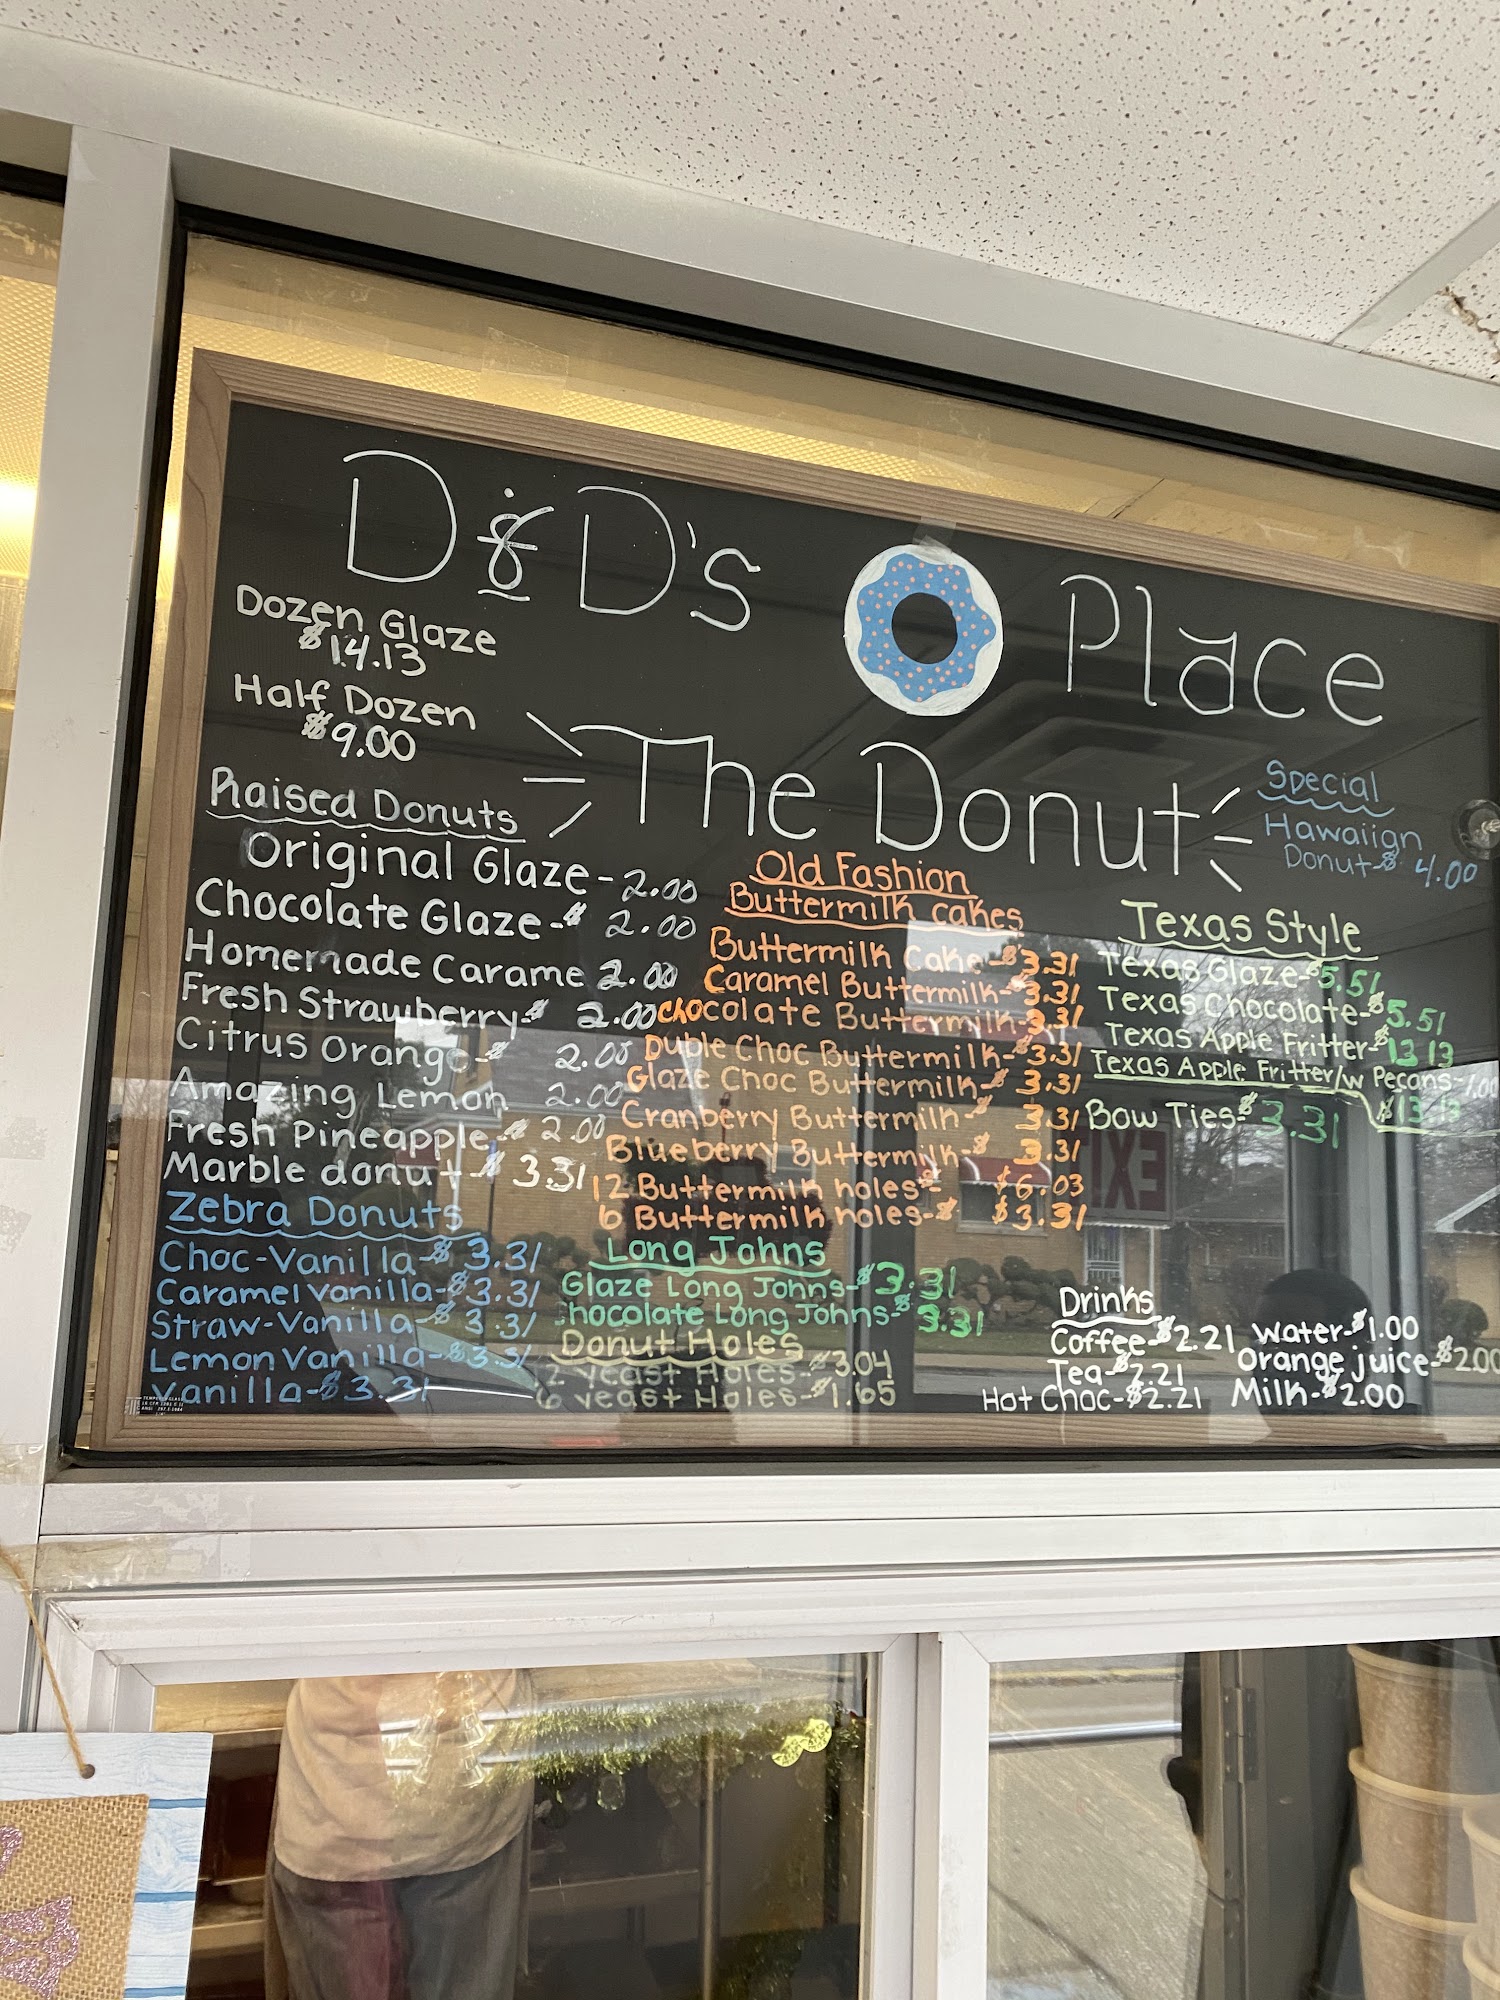 D&D's Place
The Donut
Dozen Glaze
$14.13
Half Dozen
$9.00
Raised Donuts
Original Glaze - 2.00
Chocolate Glaze - $ 2.00
Homemade Carame 2.00
Fresh Strawberry - $ 2.00
Citrus Orange - $ 2.00
Amazing Lemon 2.00
Fresh Pineapple - $ 2.00
Marble donut - $ 3.31
Zebra Donuts
Choc-Vanilla - $ 3.31
Caramel vanilla - $ 3.31
Straw-Vanilla - $ 3.31
Lemon Vanilla - $3.31
Vanilla - $ 3.31
Old Fashion
Buttermilk cakes
Buttermilk Cake - $3.31
Caramel Buttermilk - $3.31
Chocolate Buttermilk - $3.31
Duble Choc Buttermilk - $3.31
Glaze Choc Buttermilk - $ 3.31
Cranberry Buttermilk - $ 3.31
Blueberry Buttermilk - $ 3.31
12 Buttermilk holes - $6.03
6 Buttermilk holes - $ $3.31
Long Johns
Glaze Long Johns - $3.31
hocolate Long Johns - $3.31
Donut Holes
2 yeast Holes - $3.04
6 yeast Holes - $1.65
Special
Hawaiian
Donut - $ 4.00
Texas Style
Texas Glaze - $5.51
Texas Chocolate - $5.51
Texas Apple Fritter - $13.13
Texas Apple Fritter/w Pecans - 1.00
$13.13
Bow Ties - $ 3.31
Drinks
Coffee - $2.21
Tea - $2.21
Hot Choc - $2.21
Water - $1.00
Orange juice - $2.00
Milk - $2.00
EXI